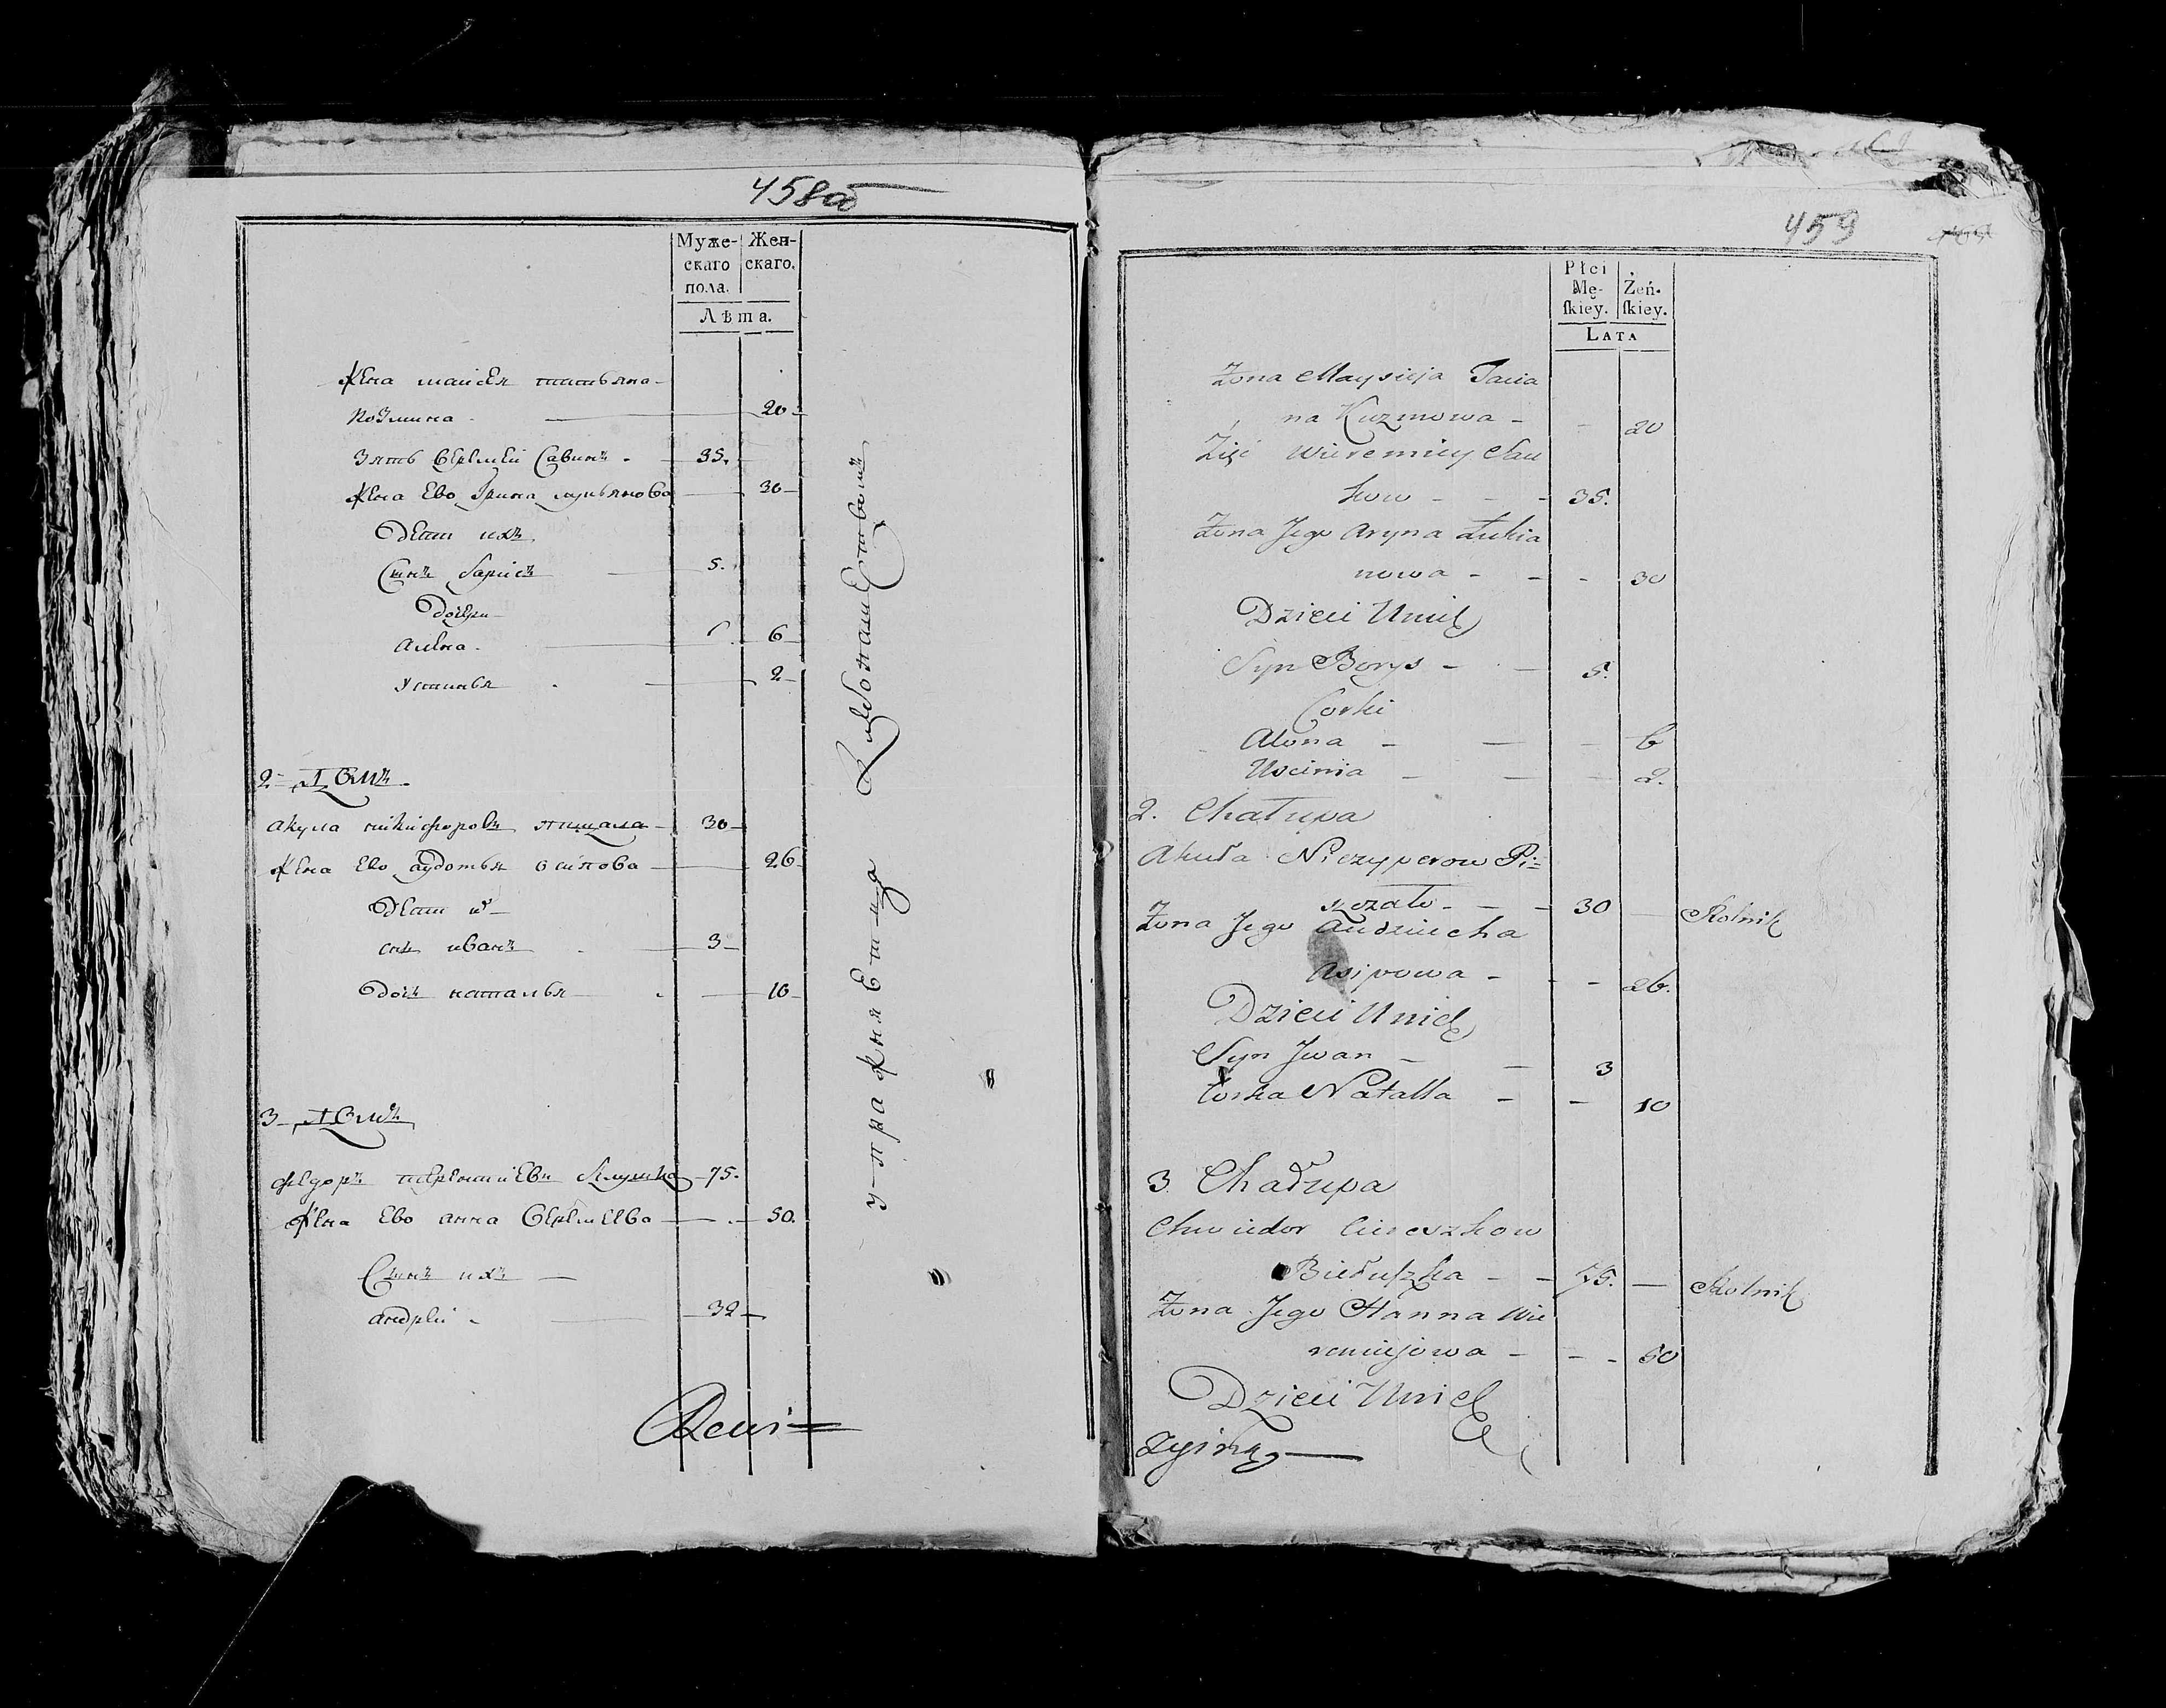 458об
Муже-
скаго
пола.
Жен-
скаго.
Лѣта.
Жена маисея татьяна
козмина - 20
Зять Еремей Савинъ - 35.
Жена Ево Ірина лукьянова 30
Дети ихъ
Сынъ барисъ 5.
Дочери
алена - 6
Устинья - 2
2 ДОМЪ
акула никифоровъ пищала 30
Жена Ево аудотья осипова 26
Дети их
снъ иванъ 3
дочь наталья 10
3 ДОМЪ
федоръ терешкиевъ Белушка 75.
Жена Ево анна Еремеева 50.
Сынъ ихъ
андреи - 32
упражняетца хлебопашествомъ
459
Płci
Mę-
skiey.
Żeń-
skiey.
LATA
Żona Maysieja Tacia
na Kuzmowa - 20
Zięć Wieremiey Sau
kow - - - 35.
Żona Jego Aryna Łukia
nowa - - - 30
Dzieci Unich
Syn Borys - - 5.
Corki
Alona - - - 6
Uscinia - - - 2.
2. Chałupa
Akuła Niczyperow Pi=
szczało - - 30 Rolnik
Żona Jego Audziucha
Asipowa - - - 26.
Dzieci Unich
Syn Jwan - - 3
Corka Natalla - - 10
3 Chałupa
Chwiedor Ciereszkow
Biełuszka - - 75. Rolnik
Żona Jego Hanna Wie
remiejowa - - - 50
Dzieci Unich